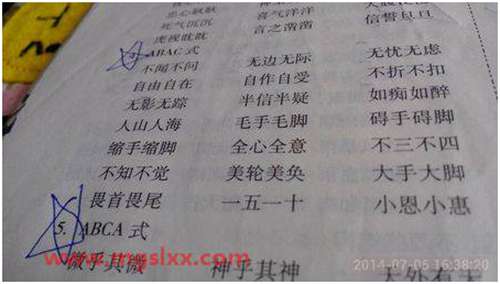 忠心耿耿
死气沉沉 喜气洋洋
虎视眈眈 言之凿凿 信誓旦旦
ABAC 式
不闻不问 无边无际 无忧无虑
自由自在 自作自受 不折不扣
无影无踪 半信半疑 如痴如醉
人山人海 毛手毛脚 碍手碍脚
缩手缩脚 全心全意 不三不四
不知不觉 美轮美奂 大手大脚
畏首畏尾 一五一十 小恩小惠
5. ABCA 式
微乎其微 神乎其神 天外有天
www.mgslxx.com
2014-07-05 16:38:20